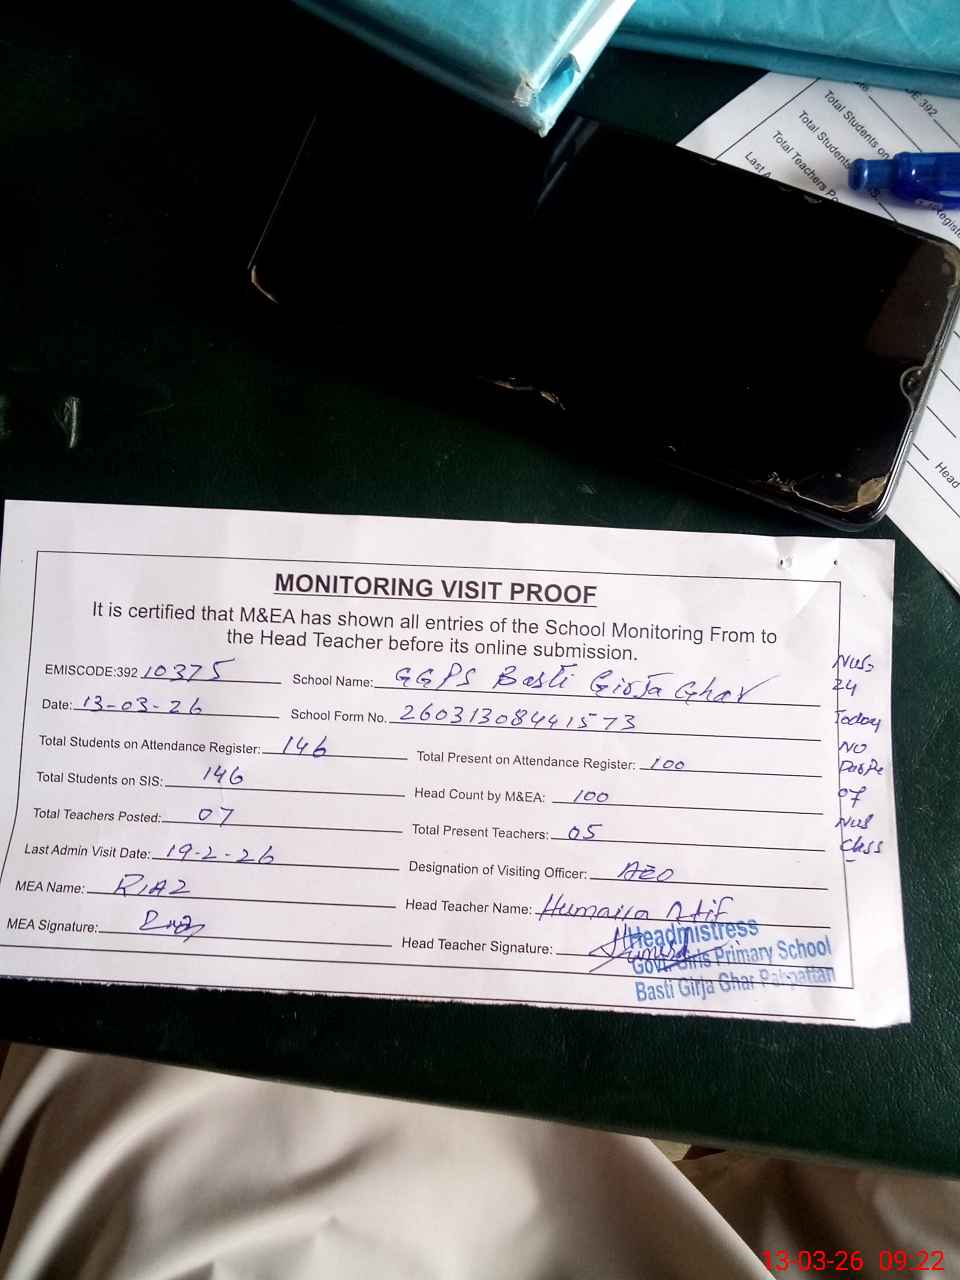 DE 392
Total Students on
Total Students
Total Teachers Po
Last A
Registe
Head
MONITORING VISIT PROOF
It is certified that M&EA has shown all entries of the School Monitoring From to
the Head Teacher before its online submission.
EMISCODE:392 10375 School Name: GGPS Basti Girja Ghar
Date: 13-03-26 School Form No. 26031308441573
Total Students on Attendance Register: 146 Total Present on Attendance Register: 100
Total Students on SIS: 146 Head Count by M&EA: 100
Total Teachers Posted: 07 Total Present Teachers: 05
Last Admin Visit Date: 19-2-26 Designation of Visiting Officer: AEO
MEA Name: RIAZ Head Teacher Name: Humaira
MEA Signature: Riaz Head Teacher Signature:
Headmistress
Govt. Girls Primary School
Basti Girja Ghar Pakpattan
24
Today
NO
of
Class
13-03-26 09:22